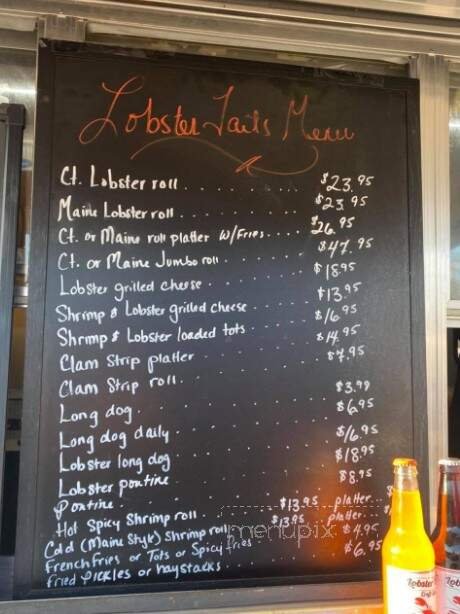 Lobster Tails Menu
Ct. Lobster roll . . . . . . . . . $23.95
Maine Lobster roll . . . . . . . . $23.95
Ct. or Maine roll platter w/Fries . . . . $26.95
Ct. or Maine Jumbo roll . . . . . . $47.95
Lobster grilled cheese . . . . . . $18.95
Shrimp & Lobster grilled cheese . . . . $13.95
Shrimp & Lobster loaded tots . . . . $16.95
Clam Strip platter . . . . . . . $14.95
Clam Strip roll . . . . . . . . $7.95
Long dog . . . . . . . . . $3.99
Long dog daily . . . . . . . $6.95
Lobster long dog . . . . . . $16.95
Lobster poutine . . . . . . . $18.95
Poutine . . . . . . . . . $8.95
Hot Spicy Shrimp roll . . . . $13.95 platter . . . $
Cold (Maine Style) Shrimp roll . . $13.95 platter . . . $
French Fries or Tots or Spicy fries . . . . $4.95
Fried Pickles or haystacks . . . . . . $6.95
menupix